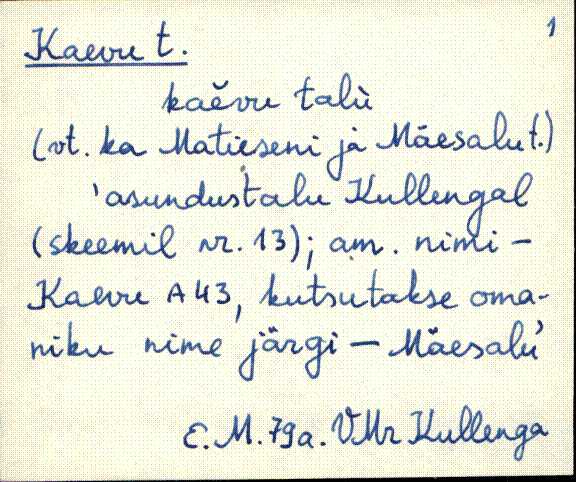 1
Kaevu t.
kaĕvu talù
(vt. ka Matieseni jà Mäesalu t.)
'asundustalu Kullengal
(skeemil nr. 13); am. nimi –
Kaevu A43, kutsutakse oma-
niku nime järgi – Mäesalu'
E.M. 79a. VMr Kullenga